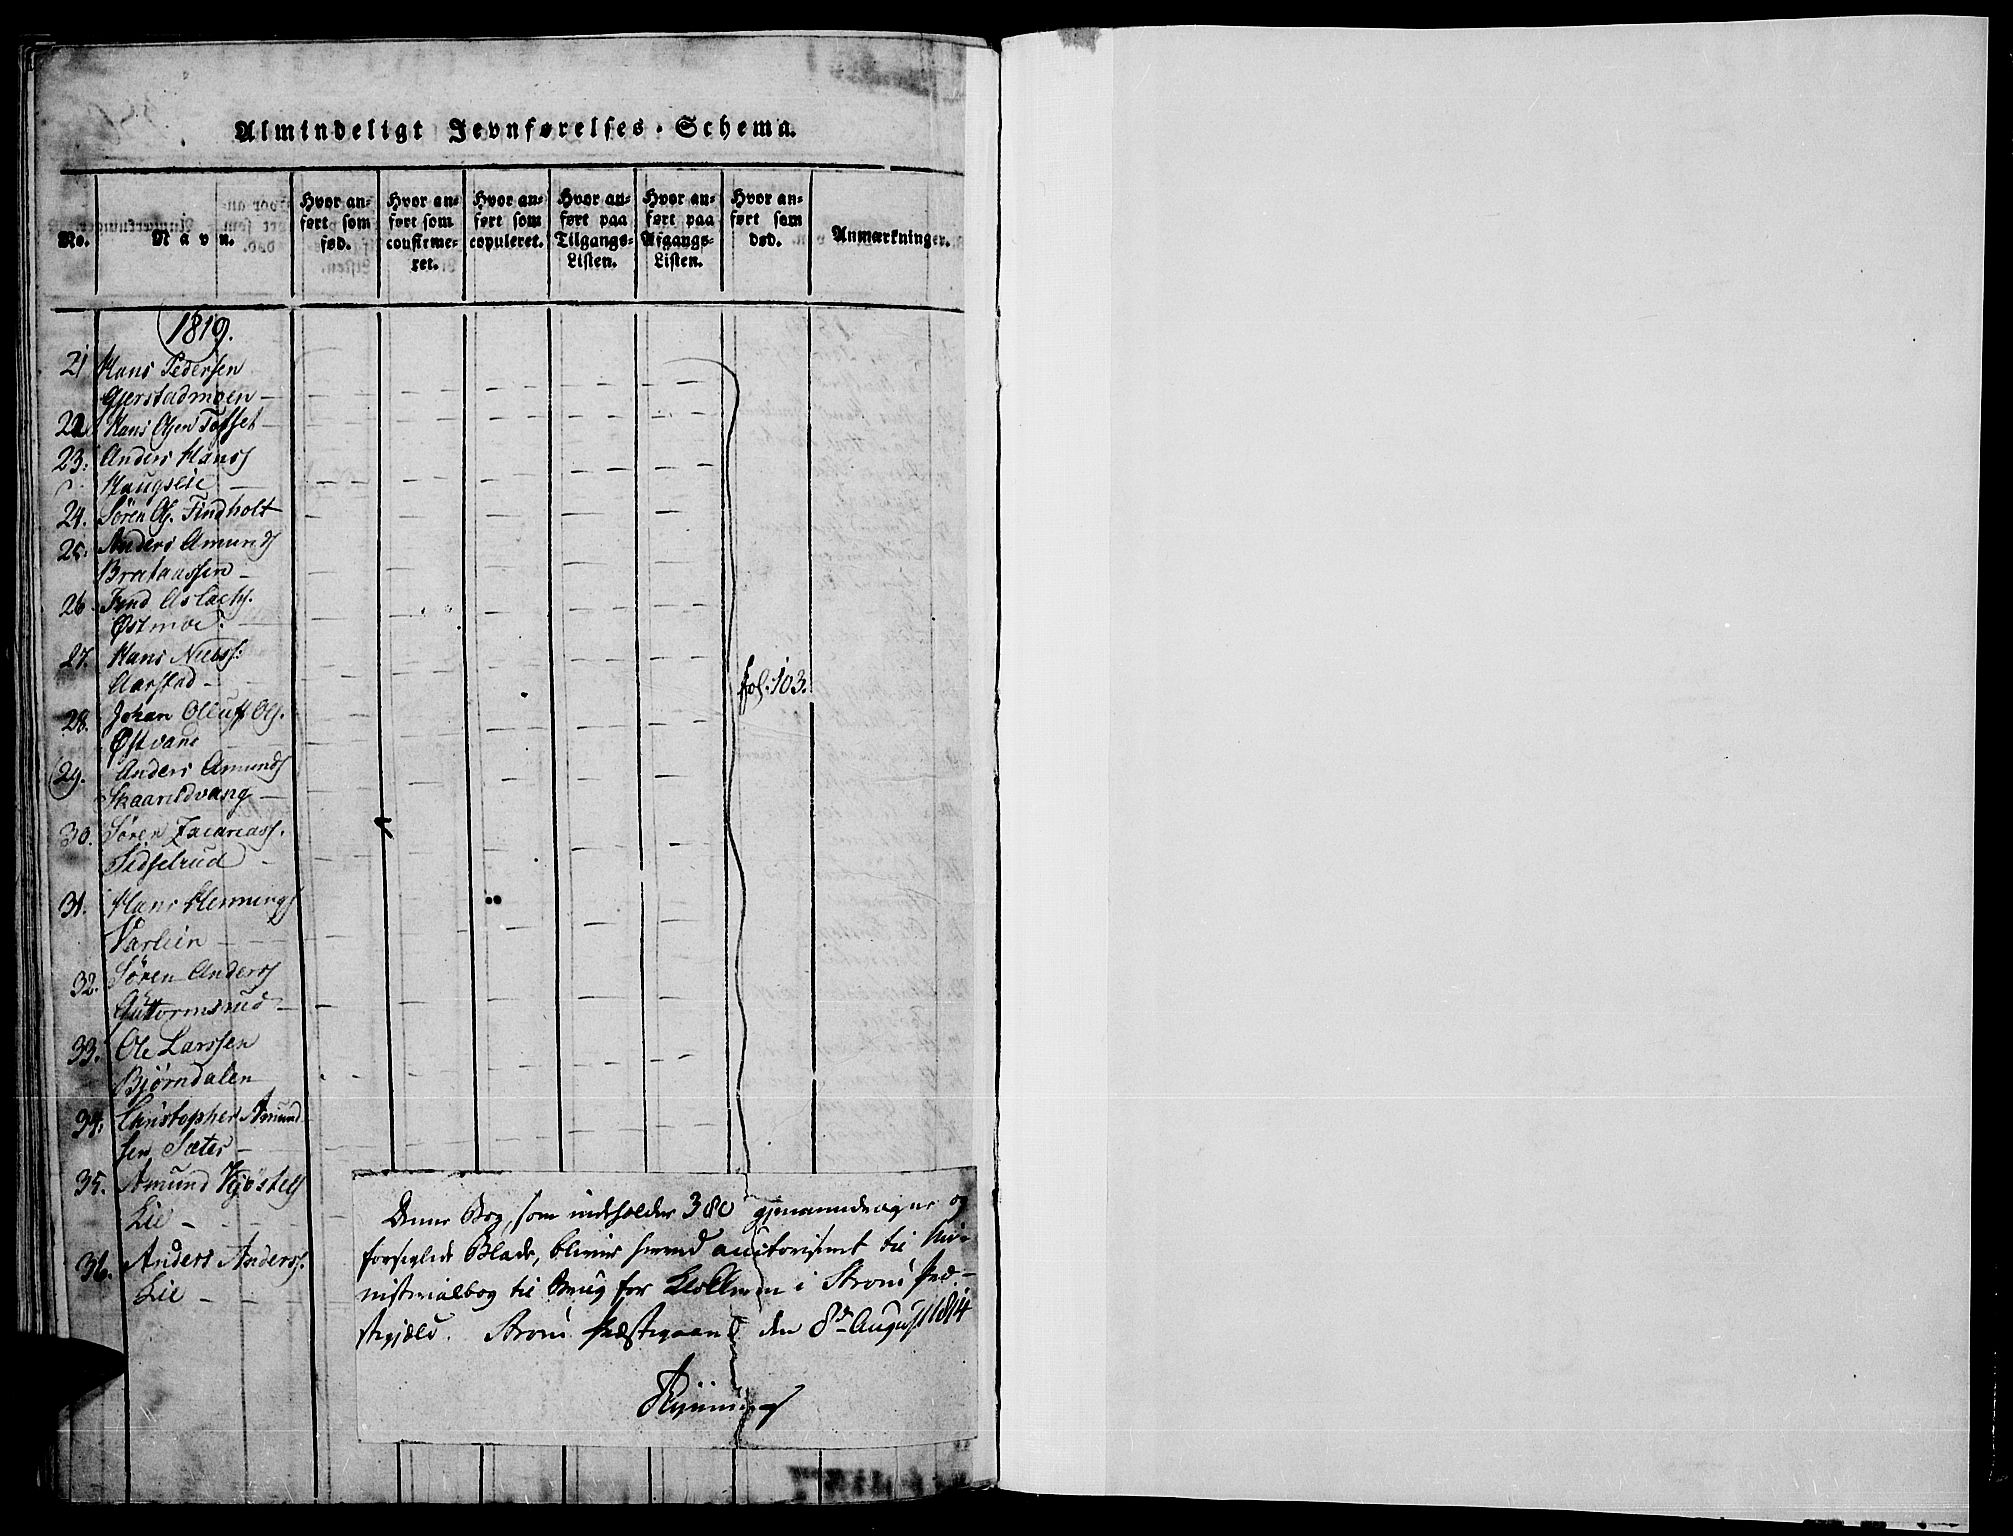 Almindeligt Jevnførelses-Schema.
No. Navn. Hvor anført som fød. Hvor anført som confirmeret. Hvor anført som copuleret. Hvor anført paa Tilgangs-Listen. Hvor anført paa Afgangs-Listen. Hvor anført som død. Anmærkninger.
1819.
21 Hans Pedersen
Gjerstadmoen
22 Hans Olsen Tofset
23. Anders Hanss
Haugslie
24. Søren Ols. Findholt
25. Anders Amunds
Brataassen
26. Find Aslachs.
Østmoe.
27. Hans Nielss.
Aarstad fol. 103.
28. Johan Olluf Ols.
Østvane
29. Anders Amunds
Skaarildvang
30. Søren Zacariass.
Sidselrud
31. Hans Hennings
Varlien
32. Søren Anderss
Guttormsrud
33. Ole Larssen
Bjørndalen
34. Christopher Amund
sen Sæter
35. Amund Kjøstels
Lie
36. Anders Anderss.
Lie
Denne Bog, som indholder 380 gjennemdragne og
forseglede Blade, bliver herved auctoriseret til Mi-
nisterialbog til Brug for i Strøm Præ-
stegjeld. Strøm Præstegaard den 8de August 1814